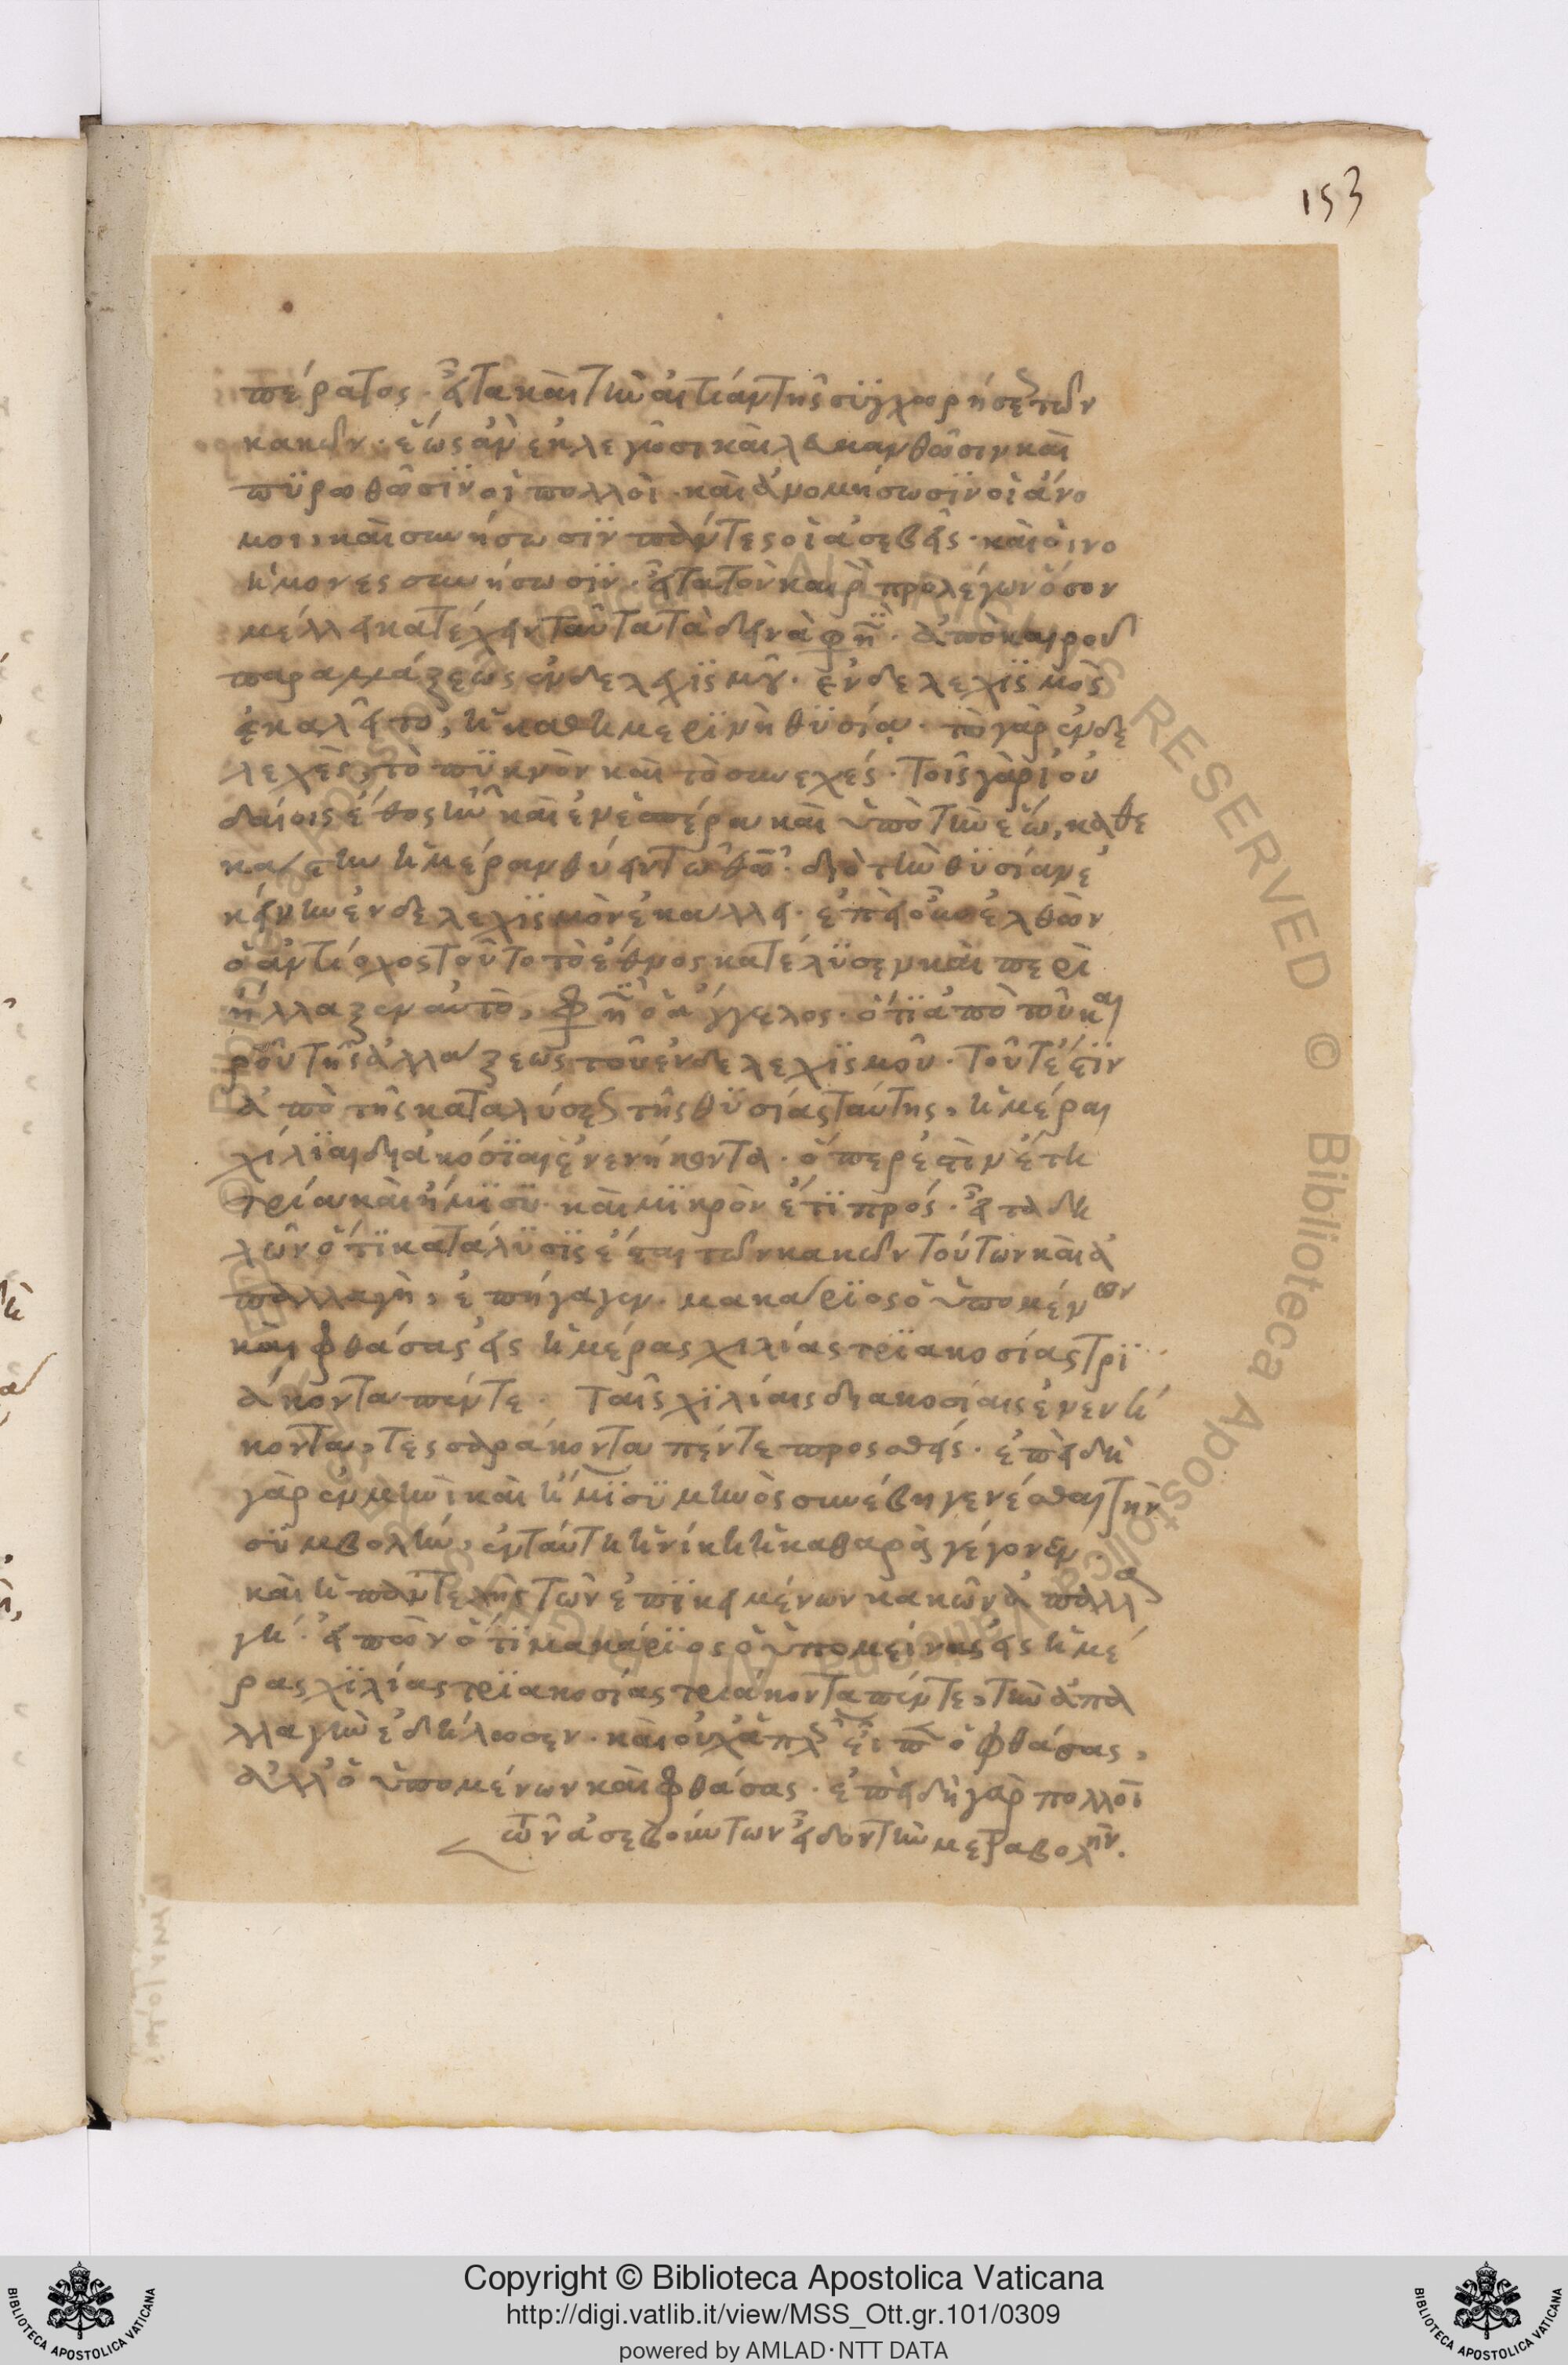 153
πέρατος· εἶτα καὶ τὴν αἰτίαν τῆς συγχωρήσεως τῶν
κακῶν· ἕως ἂν ἐκλεγῶσι καὶ λευκανθῶσιν καὶ
πϋρωθῶσϊν οἱ πολλοὶ· καὶ ἀνομήσωσϊν οἱ ἄνο
μοι, καὶ συνήσωσϊν πάντες οἱ ἀσεβεῖς· καὶ οἱ νο
ήμονες συνήσωσϊν· εἶτα τὸν καιρὸν προλέγων ὅσον
μέλλει κατέχειν ταῦτα τὰ δεινὰ φησῒ· ἀπὸ καιροῦ
παραλλάξεως ἐνδελεχϊσμοῦ· ἐνδελεχϊσμὸς
ἐκαλεῖτο, ἡ καθημερϊνὴ θϋσία· τὸ γὰρ ἐνδε
λεχὲς, τὸ πϋκνὸν καὶ τὸ συνεχές· τοῖς γὰρ ἰου
δαίοις ἔθος ἦν καὶ ἐν ἑσπέρα καὶ ὑπὸ τὴν ἕω, καθ' ἑ
κάστην ἡμέραν θύειν τῶ θεῶ· διὸ τὴν θϋσίαν ἐ
κείνην ἐνδελεχϊσμὸν ἐκάλει· ἐπεὶ οὖν ἐλθὼν
ὁ ἀντίοχος τοῦτο τὸ ἔθνος κατέλϋσεν καὶ περι
ήλλαξεν αὐτὸ, φησῒν ὁ ἄγγελος· ὅτϊ ἀπὸ τοῦ και
ροῦ τῆς ἀλλάξεως τοῦ ἐνδελεχϊσμοῦ· τοῦτέστϊν
ἀπὸ τῆς καταλύσεως τῆς θϋσίας ταύτης, ἡμέραι
χίλϊαι διακόσϊαι ἐνενήκοντα· ὅπερ ἐστὶν ἔτη
τρία καὶ ἥμϊσϋ· καὶ μϊκρὸν ἔτϊ πρός· εἶτα δη
λῶν ὅτϊ κατάλϋσϊς ἔσται τῶν κακῶν τούτων καὶ ἀ
παλλαγὴ, ἐπήγαγεν· μακάρϊος ὁ ὑπομένων
καὶ φθάσας εἰς ἡμέρας χιλίας τρϊακοσίας τρϊ
άκοντα πέντε· ταῖς χϊλίαις διακοσίαις ἐνενή
κοντα, τεσσαράκοντα πέντε προσθείς· ἐπειδὴ
γὰρ ἐν μηνὶ καὶ ἥμϊσϋ μηνὸς συνέβη γενέσθαι τὴν
σϋμβολὴν, ἐν ταύτη ἡ νίκη ἡ καθαρὰ γέγονεν·
καὶ ἡ παντελὴς τῶν ἐπϊκειμένων κακῶν ἀπαλλα
γή· εἰπὼν ὅτϊ μακάρϊος ὁ ὑπομείνας εἰς ἡμέ
ρας χϊλίας τρϊακοσίας τριάκοντα πέντε, τὴν ἀπα
λλαγὴν ἐδήλωσεν· καὶ οὐχ ἁπλῶς εἶπεν ὁ φθάσας,
ἀλλ' ὁ ὑπομένων καὶ φθάσας· ἐπειδὴ γὰρ πολλοὶ
τῶν ἀσεβούντων εἶδον τὴν μεταβολὴν.
Copyright © Biblioteca Apostolica Vaticana
http://digi.vatlib.it/view/MSS_Ott.gr.101/0309
powered by AMLAD·NTT DATA